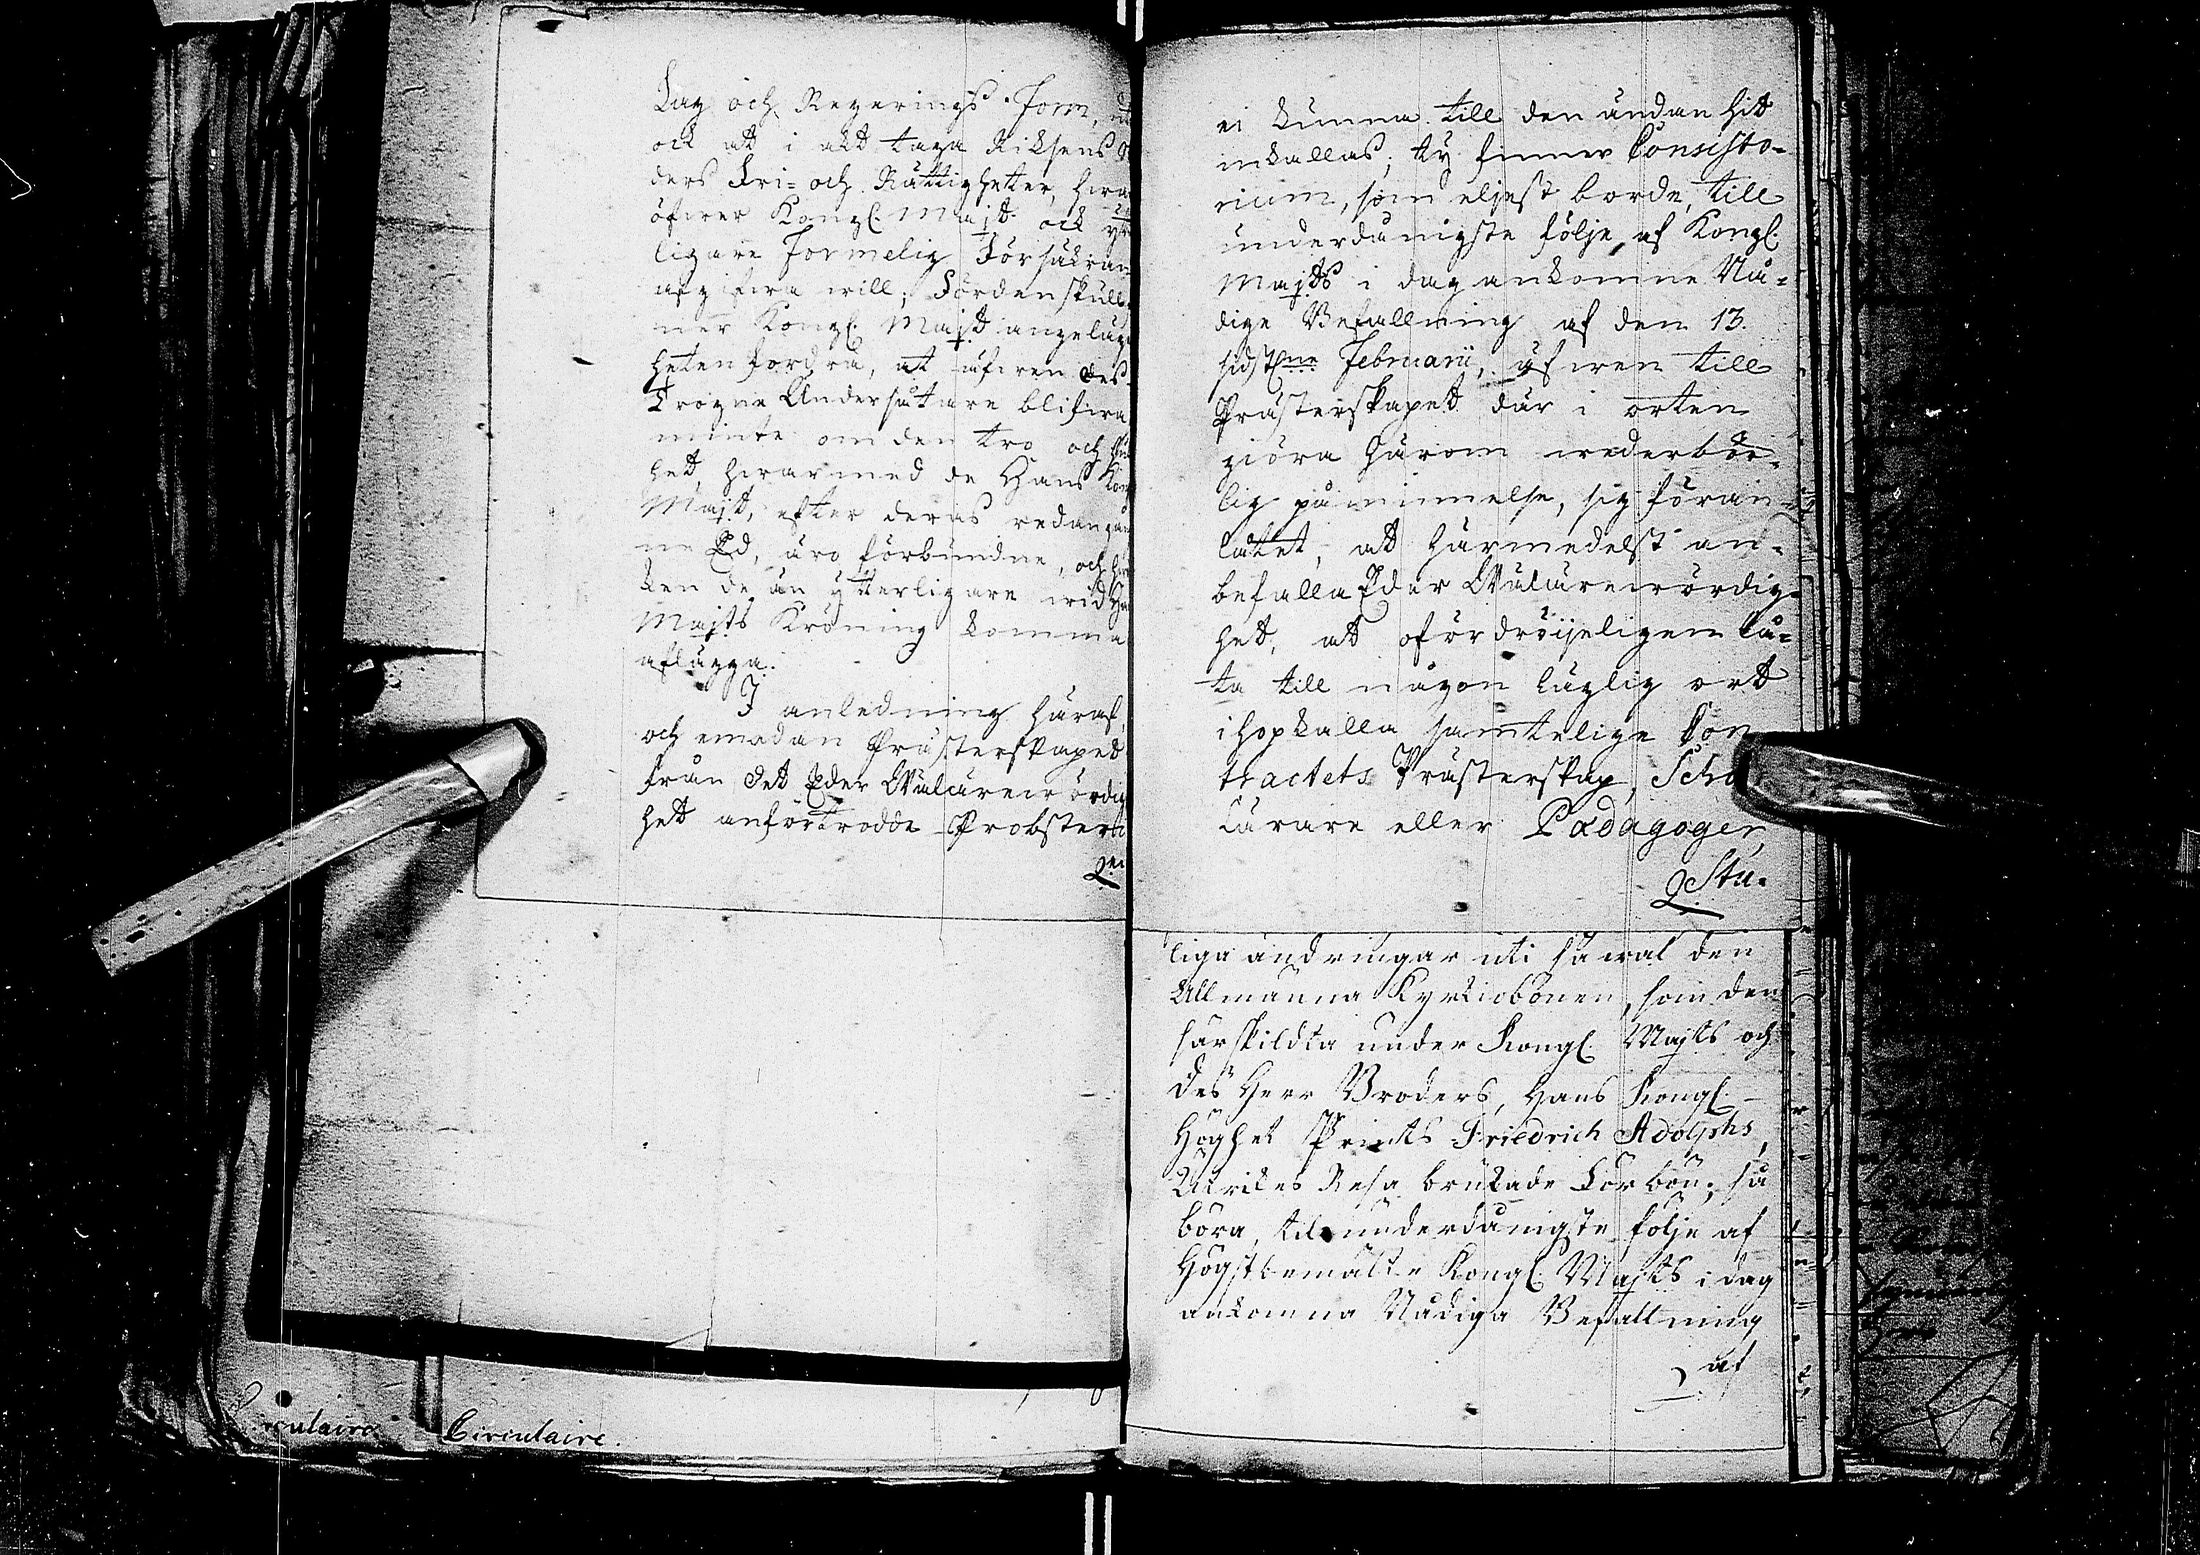 Lag och Regerings-Form,
ock at i akt taga Riksens
ders Fri- och Rättigheter, hwar
öfwer Kongl. Majt ock yt
ligare formelig Försäkran
afgifwa will; Fördenskull
ner Kongl. Majt angeläg
heten fordra, at äfwen des
Trogne Undersåtare blifwa
minte om den tro och
het, hwarmed de Hans Kon
Majt, efter deras redan
ne Ed, äro förbundne, och
ken de än ytterligare wid
Majts Kröning komma
aflägga.
I anledning häraf,
och emedan Prästerskapet
från det Eder Wälärewördig
het anförtrodde Probsteri
ei
ei kunna till den ändan hit
inkallas; ty finner Consisto-
rium, som eljest borde, till
underdånigste följe af Kongl.
Majts i dag ankomne Nå-
dige Befallning af den 13.
sidstne Februarii, äfwen till
Prästerskapet där i orten
giöra härom wederbör-
lig påminnelse, sig föran-
låtet, at härmedelst an-
befalla Eder Wälärewördig-
het, at ofördröijeligen lå-
ta till någon läglig ort
ihopkalla samtelige Con
tractets Prästerskap, Scho
Lärare eller Pædagoger,
Stu-
liga ändringar uti så wäl den
Allmänna Kyrkiobönen, som den
särskildta under Kongl. Majts och
des Herr Broders, Hans Kongl.
Höghet Prints Friedrich Adolphs,
Utrikes Resa brukade Förbön; så
böra, til underdånigste följe af
Högstbemälte Kongl. Majts i dag
ankomna Nådiga Befallning
af
Circulaire.